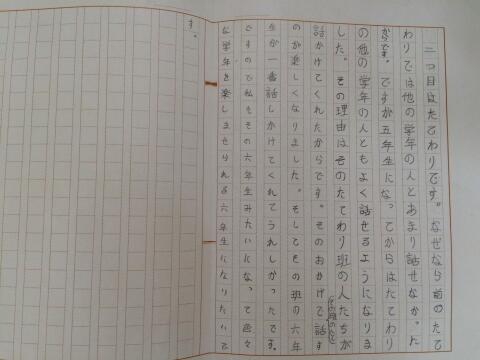 二つ目はたてわりです。なぜなら前のたて
わりでは他の学年の人とあまり話せなかった
からです。ですが五年生になってからはたてわり
の他の学年の人ともよく話せるようになりま
した。その理由はそのたてわり班の人たちが
話かけてくれたからです。そのおかげで話す
のが楽しくなりました。そしてその班の六年
生が一番話しかけてくれてうれしかったです。
ですので私もその六年生みたいになって色々
な学年を楽しませられる六年生になりたいで
す。